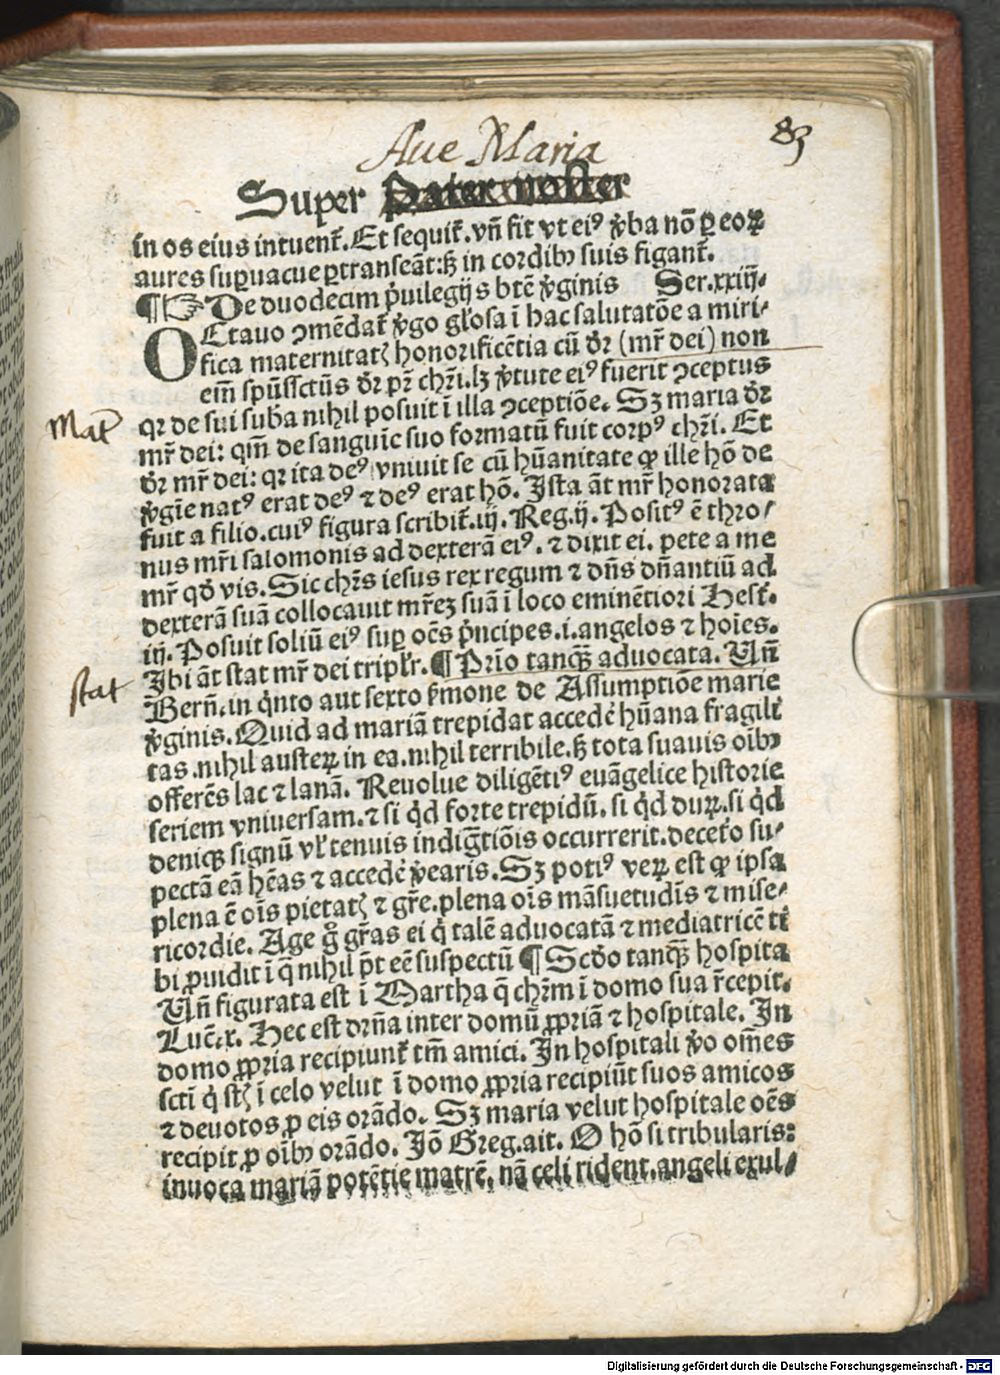 Aue Maria
83
Super Pater noster
in os eius intuent᷑. Et sequit᷑. vn̄ fit vt eiꝰ v̓ba nō ꝑ eoꝝ
aures suꝑuacue ꝑtranseāt: sꝫ in cordibꝰ suis figant᷑.
¶ ☞ De duodecim p̓uilegijs btē v̓ginis Ser. xxiij.
OCtauo ↄmēdat᷑ v̓go gl̓osa ī hac salutatōe a miri⸗
fica maternitatꝭ honorificētia cū dr̄ (mr̄ dei) non
em̄ spūssctūs dr̄ pr̄ chr̄i. lꝫ v̓tute eiꝰ fuerit ↄceptus
qꝛ de sui suba nihil posuit ī illa ↄceptiōe. Sꝫ maria dr̄
mr̄ dei: qm̄ de sanguīe suo formatū fuit corpꝰ chr̄i. Et
dr̄ mr̄ dei: qꝛ ita deꝰ vniuit se cū hūanitate ꝙ ille hō de
v̓gīe natꝰ erat deꝰ ⁊ deꝰ erat hō. Ista āt mr̄ honorata
fuit a filio. cuiꝰ figura scribit᷑. iij. Reg. ij. Positꝰ ē thro⸗
nus mr̄i salomonis ad dexterā eiꝰ. ⁊ dixit ei. pete a me
mr̄ qd̓ vis. Sic chr̄s iesus rex regum ⁊ dn̄s dn̄antiū ad
dexterā suā collocauit mr̄eꝫ suā ī loco eminētiori Hest᷑.
iij. Posuit soliū eiꝰ suꝑ oēs p̓ncipes. i. angelos ⁊ hoīes.
Ibi āt stat mr̄ dei tripl̓r. ¶ Prīo tanqꝫ aduocata. Vn̄
Bern̄. in q̓nto aut sexto s̓mone de Assumptiōe marie
v̓ginis. Quid ad mariā trepidat accedē hūana fragili⸗
tas. nihil austeꝝ in ea. nihil terribile. sꝫ tota suauis oībꝰ
offerēs lac ⁊ lanā. Reuolue diligētiꝰ euāgelice historie
seriem vniuersam. ⁊ si q̓d forte trepidū. si q̓d duꝝ. si q̓d
deniqꝫ signū vl̓ tenuis indig̓tiōis occurrerit. decet̓o su⸗
spectā eā hēas ⁊ accedē v̓earis. Sꝫ potiꝰ veꝝ est ꝙ ipsa
plena ē oīs pietatꝭ ⁊ gr̄e. plena oīs māsuetudīs ⁊ mise⸗
ricordie. Age g̊ gr̄as ei q̓ talē aduocatā ⁊ mediatricē ti⸗
bi ꝓuidit ī q̄ nihil pt̄ eē suspectū ¶ Scd̓o tanqꝫ hospita
Vn̄ figurata est ī Martha q̄ chr̄m ī domo sua r̄cepit.
Luc̄. x. Hec est dr̄ña inter domū ꝓpriā ⁊ hospitale. In
domo ꝓpria recipiunt᷑ tm̄ amici. In hospitali v̓o om̄es
sctī q̓ stꝭ ī celo velut ī domo ꝓpria recipiūt suos amicos
⁊ deuotos. ꝓ eis orādo. Sꝫ maria velut hospitale oēs
recipit. ꝓ oībꝰ orādo. Iō Greg. ait. O hō si tribularis:
inuoca mariā potētie matrē, nā celi rident. angeli exul⸗
Mat᷑
stat
Digitalisierung gefördert durch die Deutsche Forschungsgemeinschaft - DFG